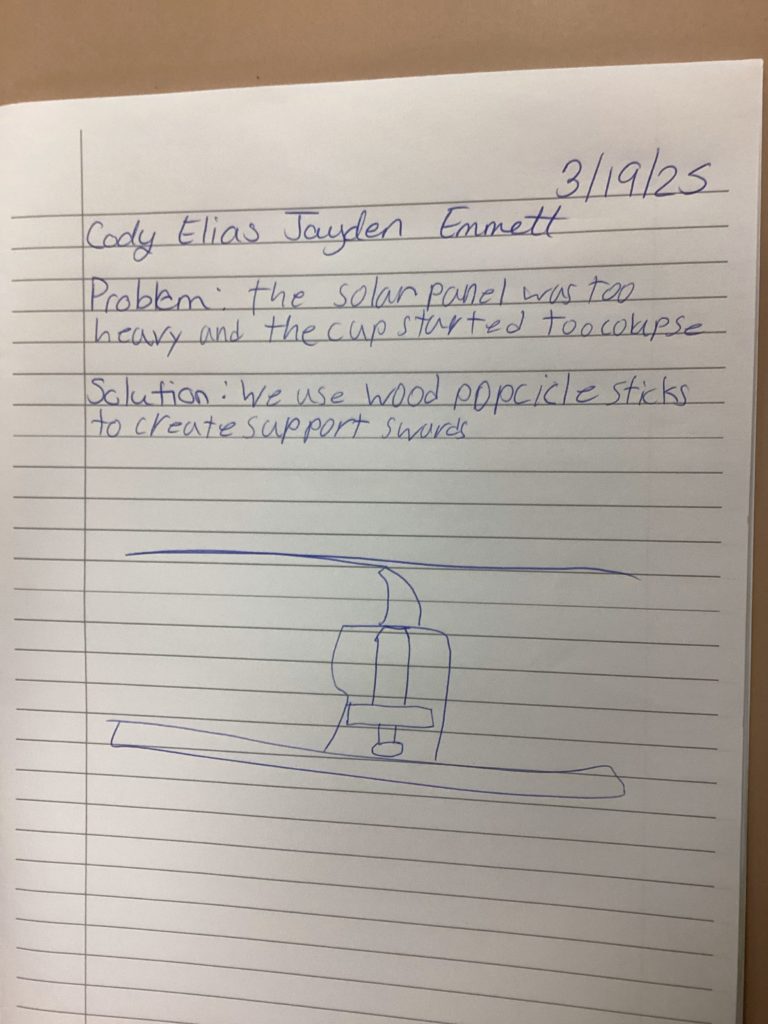 3/19/25
Cody Elias Jayden Emmett
Problem: the solar panel was too
heavy and the cup started too colapse
Solution: we use wood popcicle sticks
to create support swords